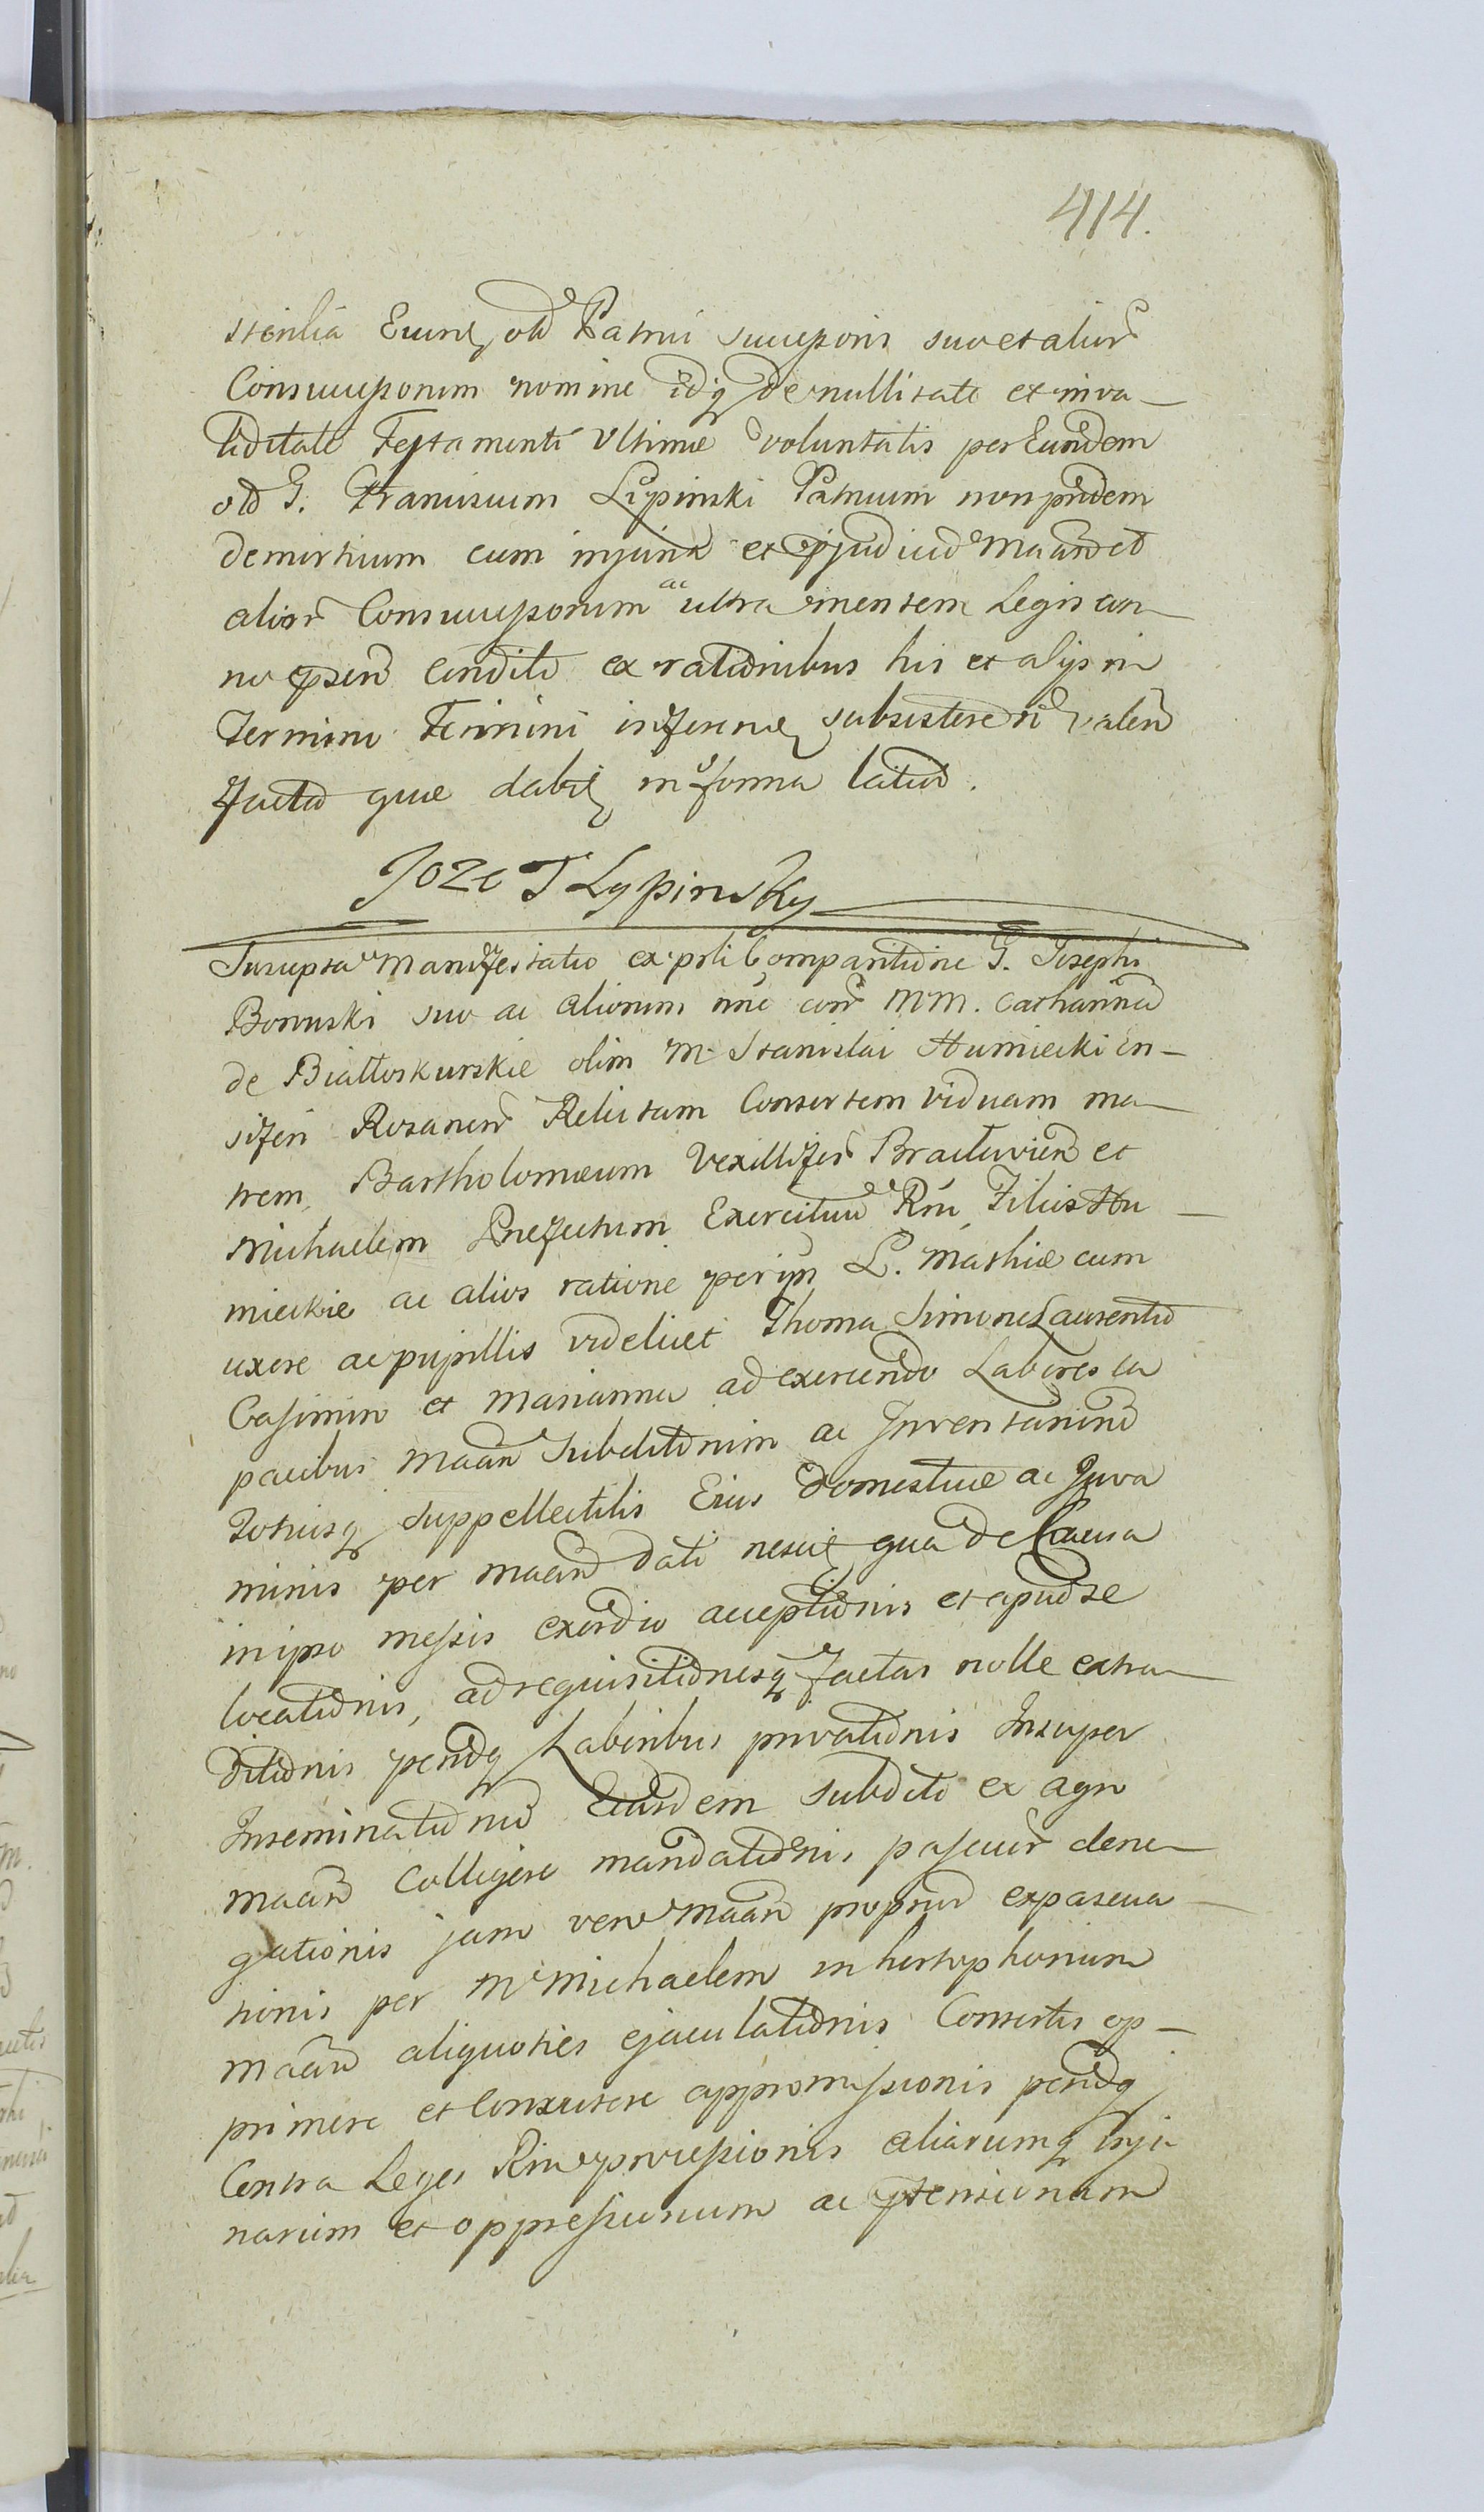 414.
stentia Eiusdq olim Patrui successoris suo et alior
Consuccessorum nomine idq de nullitate et inva-
liditate Testamenti Ultimæ voluntatis per Eundem
old G. Franciscum Lipinski Patruum non pridem
demortuum cum injuria et pjudicio Maan et
alior Consuccessorum ac ultra mentem Legis an-
no psen condito ex rationibus his et alijs in
Termino Termini inferens subsistere n valen
facto quæ dabit in forma latius.
Jozef Lypinsky
Suscepta Manifestatio ex psli Comparitione G. Josephi
Boruski suo ac aliorum nne con MM. Catharinam
de Białłoskurskie olim M. Stanislai Humiecki En-
siferi Rozanen Relictam Consortem Viduam ma-
trem, Bartholomæum Vexillifer Braclavien et
Michaelem Præfectum Exercituum Rni Filios Hu-
mieckie ac alios ratione per ips L. Mathiæ cum
uxore ac pupillis videlicet Thoma Simone Laurentio
Casimiro et Marianna ad exercendo Labores ca
pacibus Maan Subditorum ac Inventarium
Totiusq Suppellectilis Eius Domesticæ ac Juva
minis per Maan dati nescit qua de Causa
in ipso messis exordio acceptionis et apud se
locationis, ad requisitionesq factas nolle extra-
ditionis pendq Laboribus privationis Insuper
Inseminationum Eiusdem Subditi ex agro
Maan Colligere mandationis, pascuor dene-
gationis jam vero Maan propriu expascua-
tionis per M Michaelem in hortophorium
Maan aliquoties ejaculationis Consortis op-
primere et Conscutere appromissionis pendq
Contra Leges Rni processionis aliarumq Inju-
riarum et oppressionum ac ptensionum